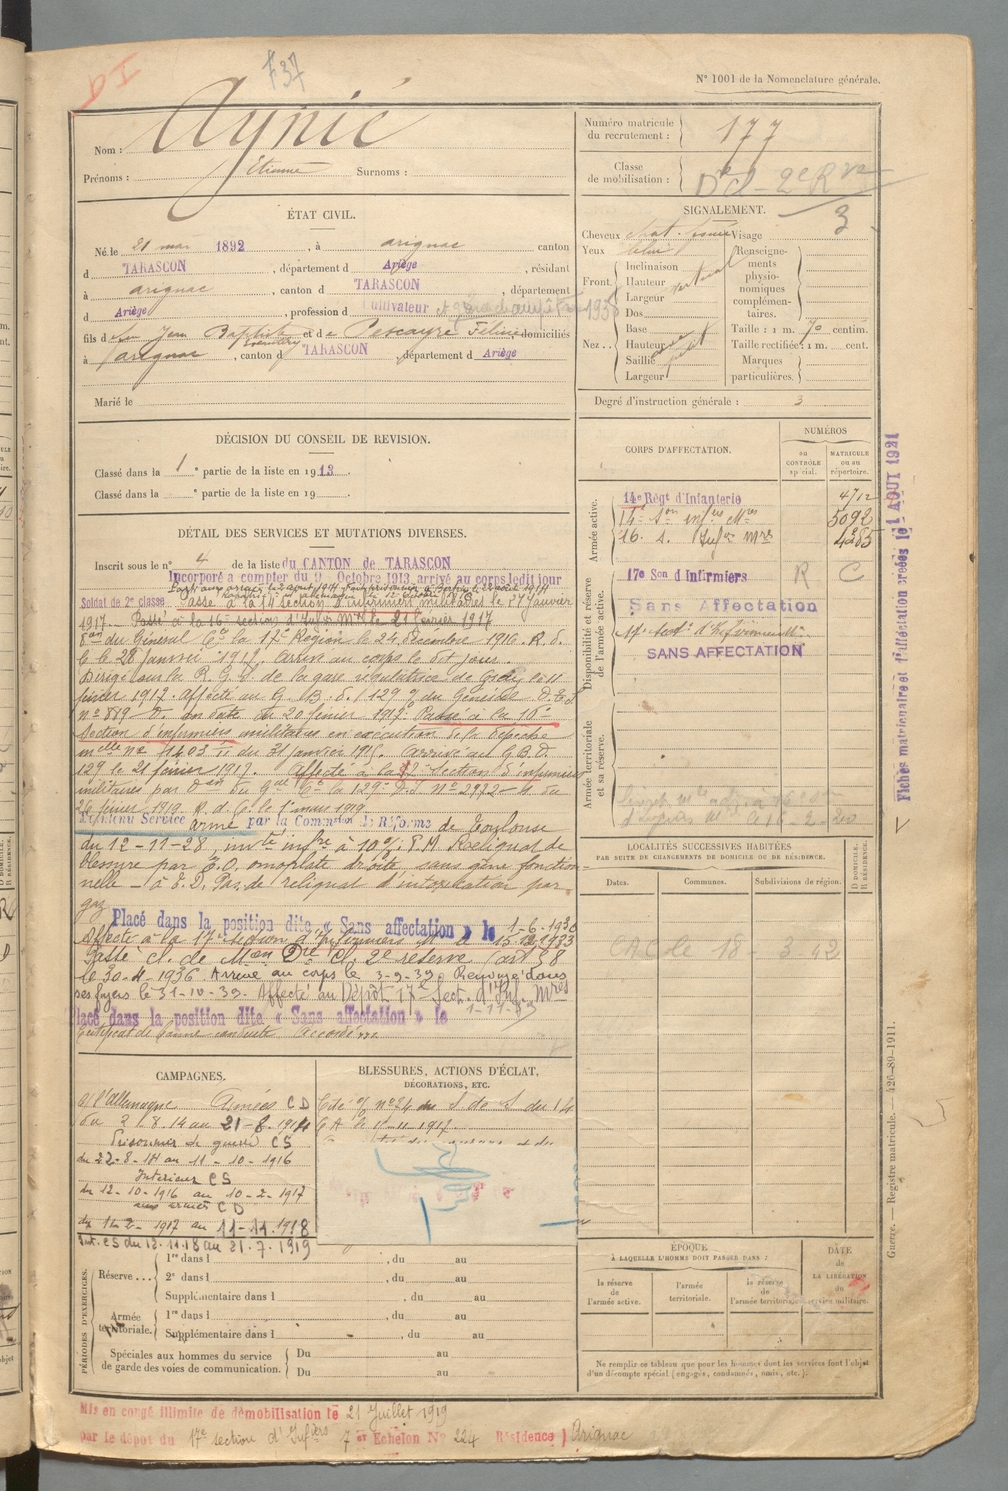 DI
F37
N° 1001 de la Nomenclature générale.
Nom : Aynié
Prénoms : Étienne Surnoms :
Numéro matricule du recrutement : 177
Classe de mobilisation : Dre cl - 2e Rve
3
ÉTAT CIVIL.
Né le 21 mai 1892, à arignac canton
d TARASCON, département d Ariège, résidant
à arignac, canton d TARASCON, département
d Ariège, profession d Cultivateur
fils d feu Jean Baptiste et de Pescayre Féline domiciliés
à arignac, canton d TARASCON, département d Ariège
Marié le
SIGNALEMENT.
Cheveux chat. foncé Visage
Yeux bleu
Front Inclinaison
Hauteur vertical
Largeur
Nez Dos
Base
Hauteur
Saillie
Largeur
Renseignements physionomiques complémentaires.
Taille : 1 m. 70 centim.
Taille rectifiée : 1 m. cent.
Marques particulières.
Degré d'instruction générale : 3
DÉCISION DU CONSEIL DE REVISION.
Classé dans la 1e partie de la liste en 1913.
Classé dans la e partie de la liste en 19
DÉTAIL DES SERVICES ET MUTATIONS DIVERSES.
Inscrit sous le n° 4 de la liste du CANTON de TARASCON
Incorporé à compter du 9 Octobre 1913, arrivé au corps ledit jour
Soldat de 2e classe. Passé à la 14 section d'infirmiers militaires le 27 Janvier
1917. Passé à la 16e section d'Infirs Mres le 21 février 1917
on du Général Ct la 17e Région le 24 décembre 1916. R. d.
C le 28 Janvier 1917, arrivé au corps le dit jour.
Dirigé sur la R. G. S. de la gare régulatrice de le 11
février 1917. affecté au G. B. d. /129 on du Général D.E.S
n° 889 D. en date du 20 février 1917. Passé à la 16e
Section d'infirmiers militaires en exécution de la dépêche
melle n° 11403 du 31 Janvier 1917. arrivé au G.B.D.
129 le 21 février 1917. Affecté à la 17e Section d'infirmiers
militaires par Don du Gal Ct la 129e D.I N° 2972 du
26 février 1919. R. d. C. le 1er mars 1919.
Maintenu Service armé par la Commion de Réforme de Toulouse
du 12-11-28, invté infre à 10% P.M. Reliquat de
blessure par E.O. omoplate droite sans gêne fonction-
nelle - à E.D. Pas de reliquat d'intoxication par
gaz
Placé dans la position dite « Sans affectation » le 1-6-1930
Affecté à la 17e section d'Infirmiers M le
Passé cl. de Mon Dre cl. 2e réserve (art 58
le 30-4-1936 Arrivé au corps le 3-9-39. Renvoyé dans
ses foyers le 31-10-39. Affecté au Dépôt 17e Sect. d'Inf. Mres
Placé dans la position dite « Sans affectation » le 1-11-39
Certificat de bonne conduite Accordé.
CORPS D'AFFECTATION.
NUMÉROS
au CONTRÔLE spécial.
MATRICULE ou au répertoire.
Armée active.
14e Régt d'Infanterie 4712
14e Son infres Mres 5092
16e s. Infirs Mres 4285
Disponibilité et réserve de l'armée active.
17e Son d'Infirmiers R C
Sans Affectation
17e Sect. d'Infirmiers
SANS AFFECTATION
Armée territoriale et sa réserve.
Fiches matriculaire et d'affectation créées le 1 AOUT 1931
LOCALITÉS SUCCESSIVES HABITÉES
PAR SUITE DE CHANGEMENTS DE DOMICILE OU DE RÉSIDENCE.
Dates. Communes. Subdivisions de région. D DOMICILE. R RÉSIDENCE.
CAC le 18-3-42
CAMPAGNES.
c/ l'allemagne Armées CD
du 2.8.14 au 21-8-1914
Prisonnier de guerre CS
du 22-8-14 au 11-10-1916
Intérieur CS
du 12-10-1916 au 10-2-1917
aux armées CD
du 11-2-1917 au 11-11-1918
Int. CS du 12.11.18 au 21.7.1919
BLESSURES, ACTIONS D'ÉCLAT, DÉCORATIONS, ETC.
Cité o/ n° 24 du S de S du 14
CA le -11-1917.
PÉRIODES D'EXERCICES.
Réserve... 1re dans l, du au
2e dans l, du au
Supplémentaire dans l, du au
Armée territoriale. 1re dans l, du au
Supplémentaire dans l, du au
Spéciales aux hommes du service de garde des voies de communication. Du au
Du au
ÉPOQUE
À LAQUELLE L'HOMME DOIT PASSER DANS :
la réserve de l'armée active. l'armée territoriale. la réserve de l'armée territoriale.
DATE de LA LIBÉRATION du service militaire.
Ne remplir ce tableau que pour les hommes dont les services font l'objet d'un décompte spécial (engagés, condamnés, omis, etc.).
Guerre. — Registre matricule. — 420-89-1911.
Mis en congé illimité de démobilisation le 21 Juillet 1919
par le dépôt du 17e section d'Infiers 7e Echelon N° 224 Résidence ) Arignac